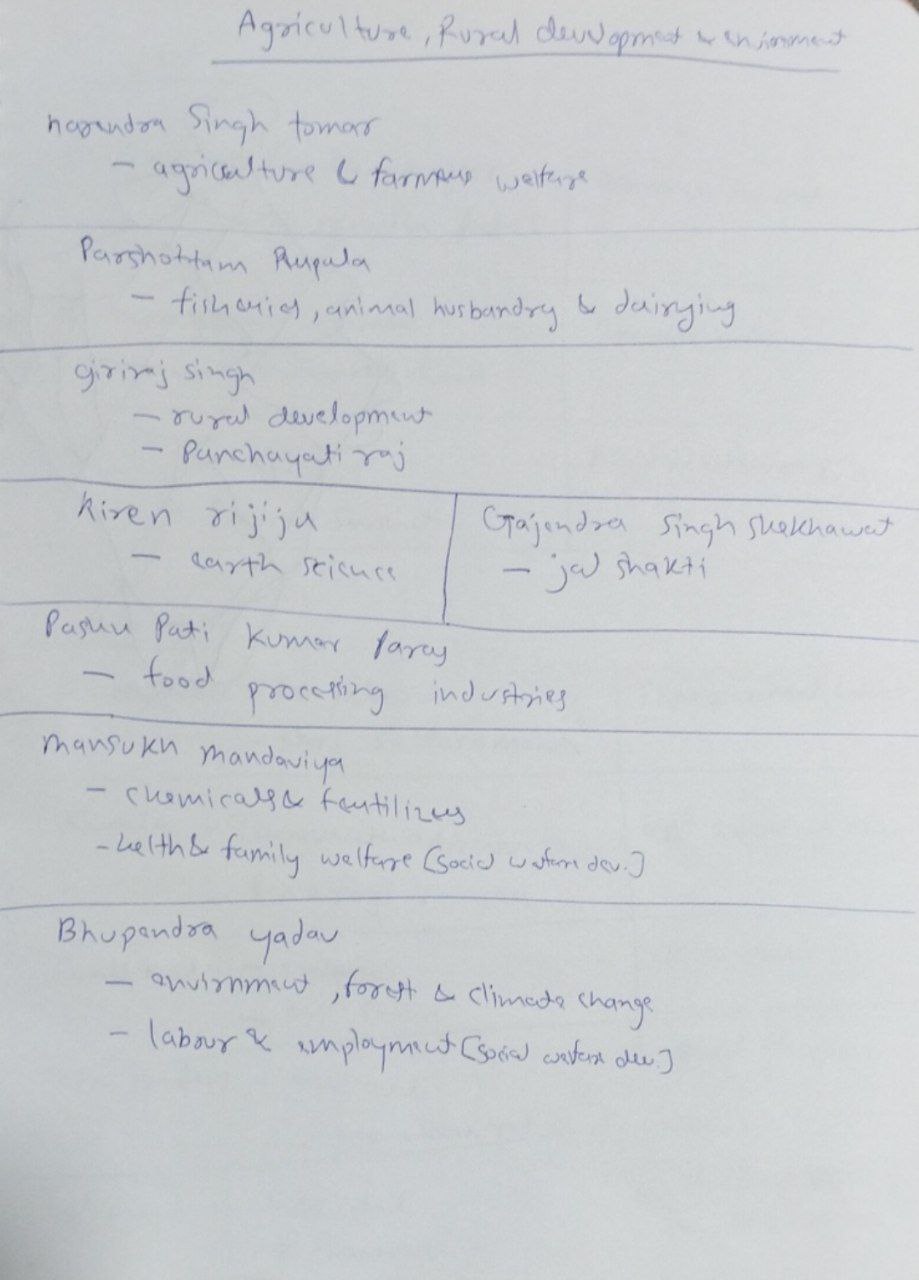 Agriculture, Rural development & enironment
narendra Singh tomar
- agriculture & farmers welfare
Parshottam Rupala
- fisheries, animal husbandry & dairying
giriraj singh
- rural development
- Panchayati raj
Kiren rijiju
- earth science
Gajendra Singh Shekhawat
- jal shakti
Pashu Pati Kumar Paras
- food processing industries
mansukh mandaviya
- chemicals & feutilizers
- helth & family welfare [social welfare dev.]
Bhupendra yadav
- envirnment, forest & climate change
- labour & employment [social welfare dev.]